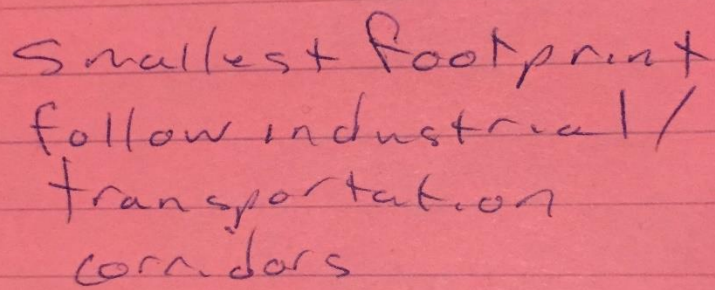 Smallest footprint
follow industrial/
transportation
corridors